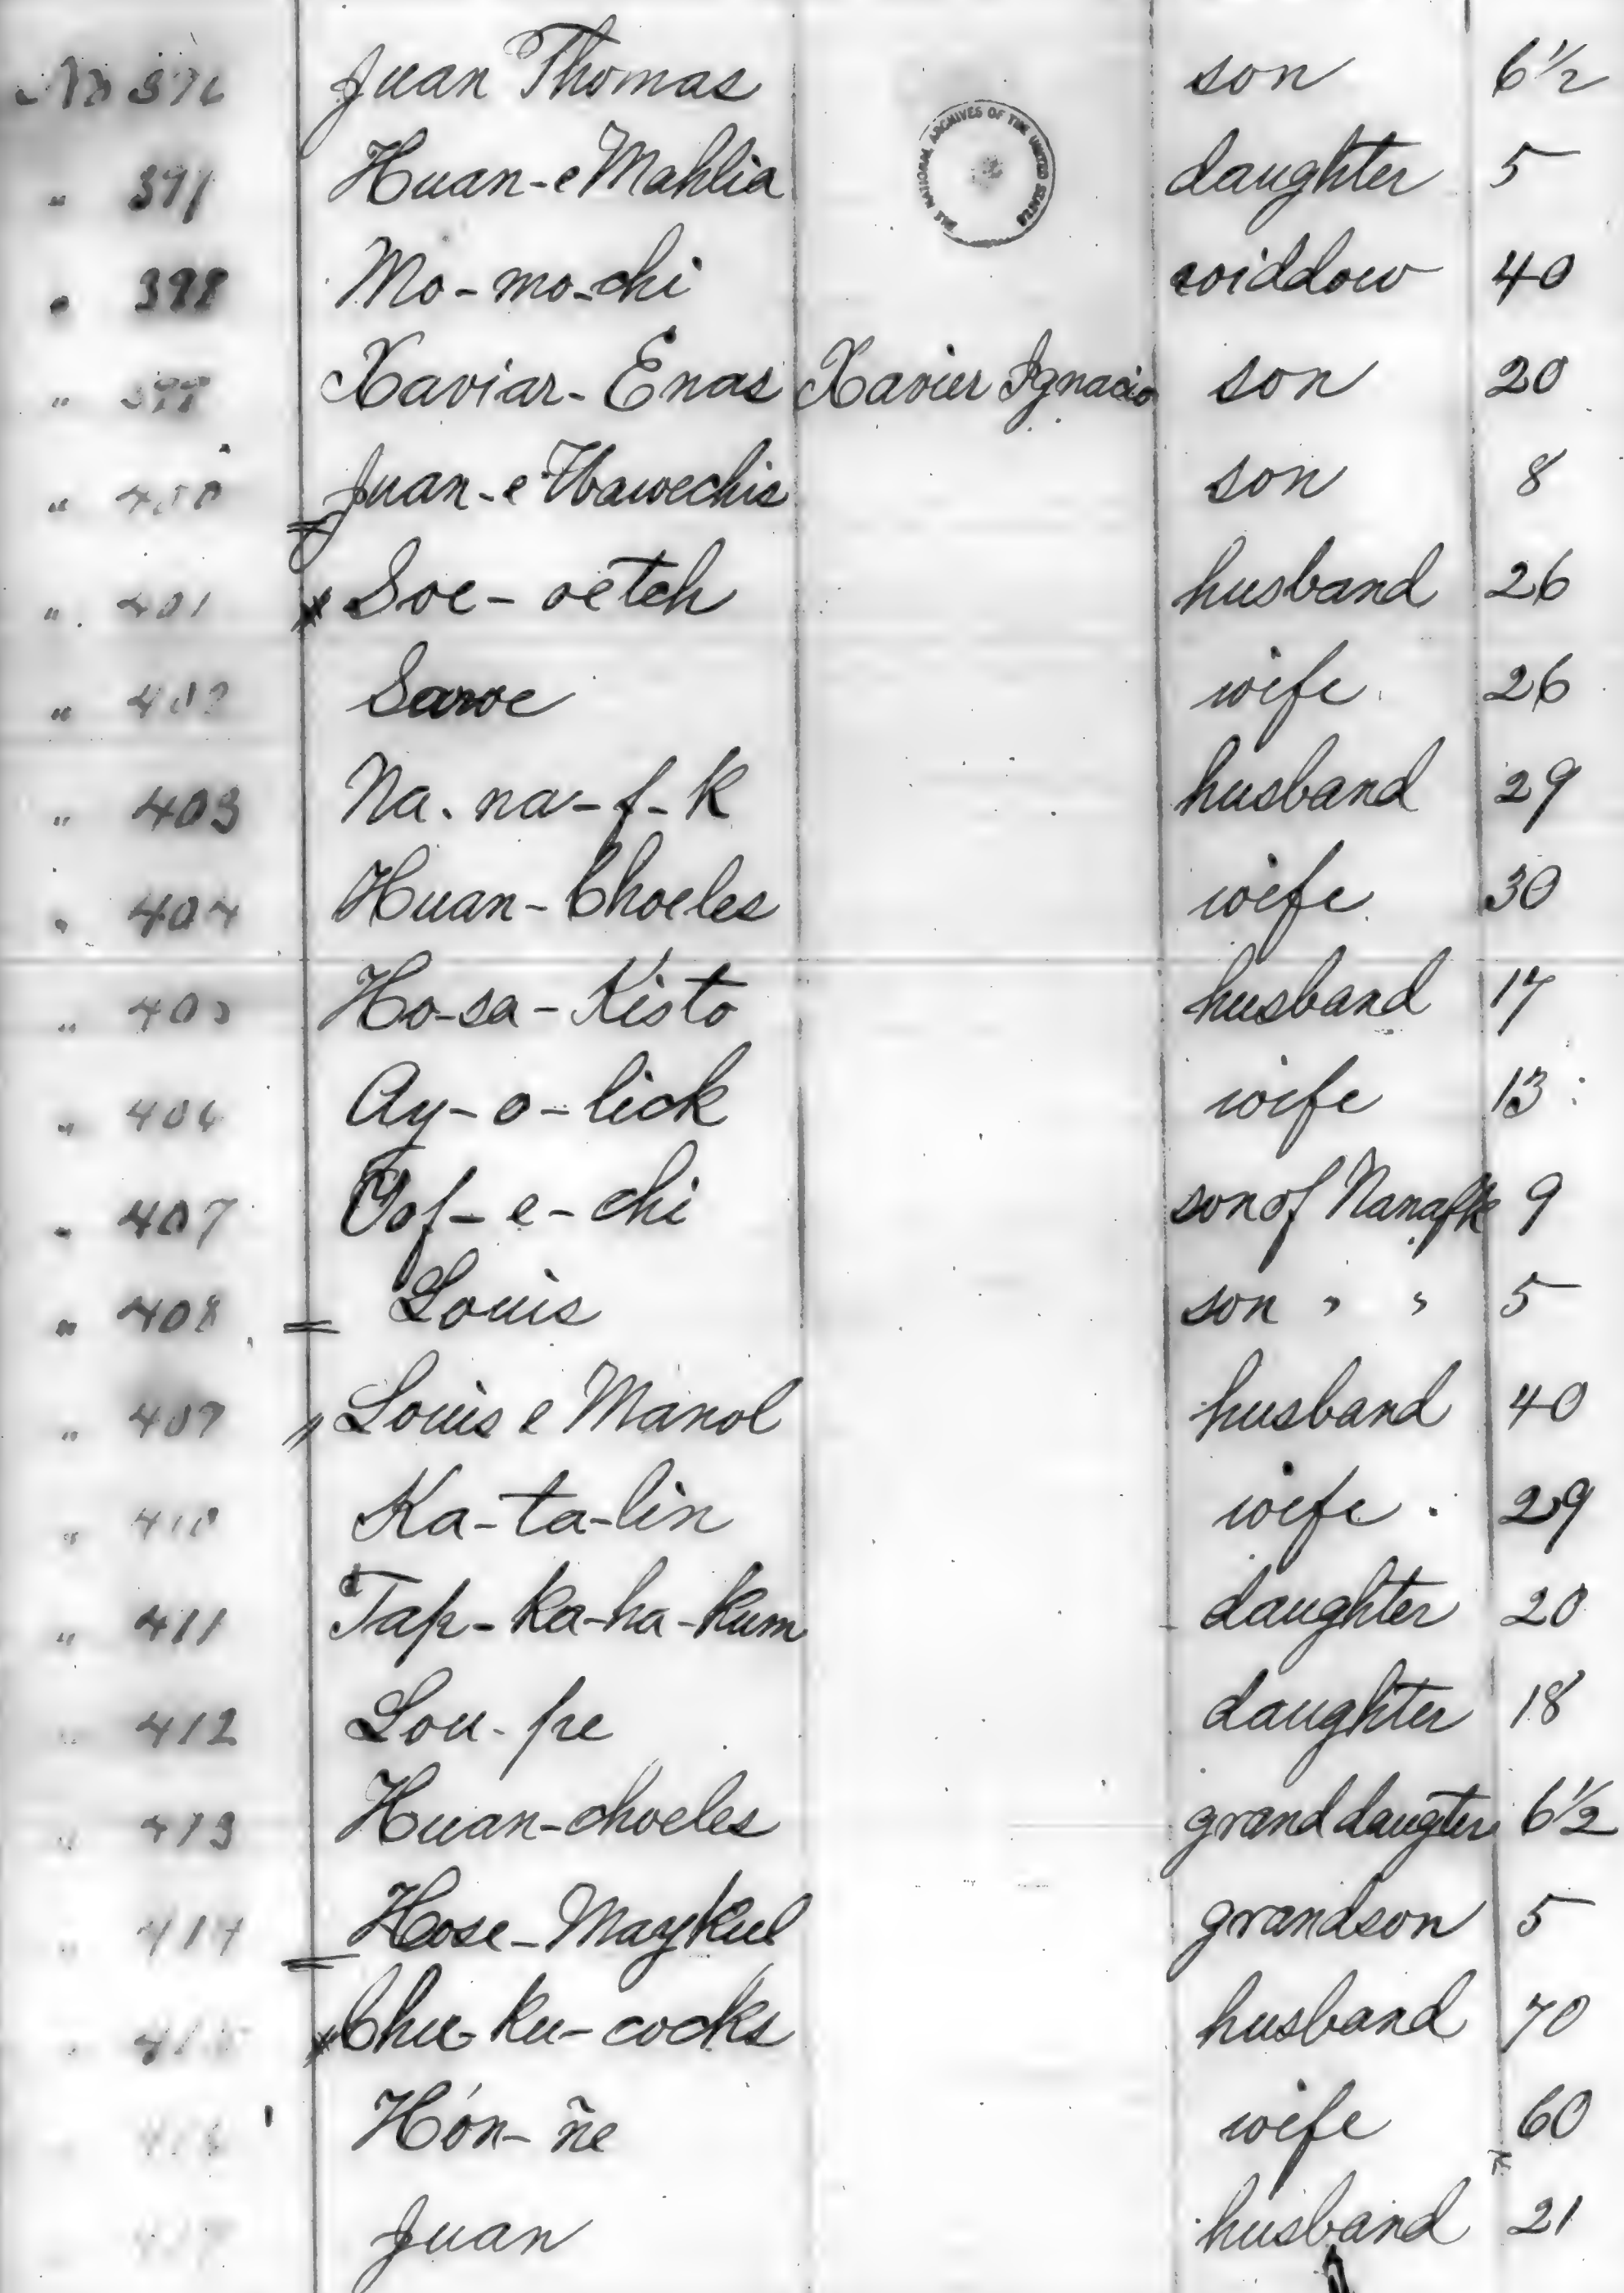 No 396 Juan Thomas son 6 1/2
THE NATIONAL ARCHIVES OF THE UNITED STATES
" 397 Huan-e Mahlia daughter 5
" 398 Mo-mo-chi widdow 40
" 399 Xaviar-Enas Xavier Ignacio son 20
" 400 Juan-e son 8
" 401 Soe-oetch husband 26
" 402 wife 26
" 403 Na-na-f-k husband 29
" 404 Huan-Choeles wife 30
" 405 Ho-sa-Kisto husband 17
" 406 Ay-o-lick wife 13
" 407 Oof-e-chi son of Nanafk 9
" 408 Louis son " " 5
" 409 Louis e Manol husband 40
" 410 Ka-ta-lin wife 29
" 411 Tap-ka-ha-kum daughter 20
" 412 Lou-pe daughter 18
" 413 Huan-choeles granddaugter 6 1/2
" 414 Hose-Maykul grandson 5
" 415 Chu-ku-cocks husband 70
" 416 Hón-ñe wife 60
417 Juan husband 21